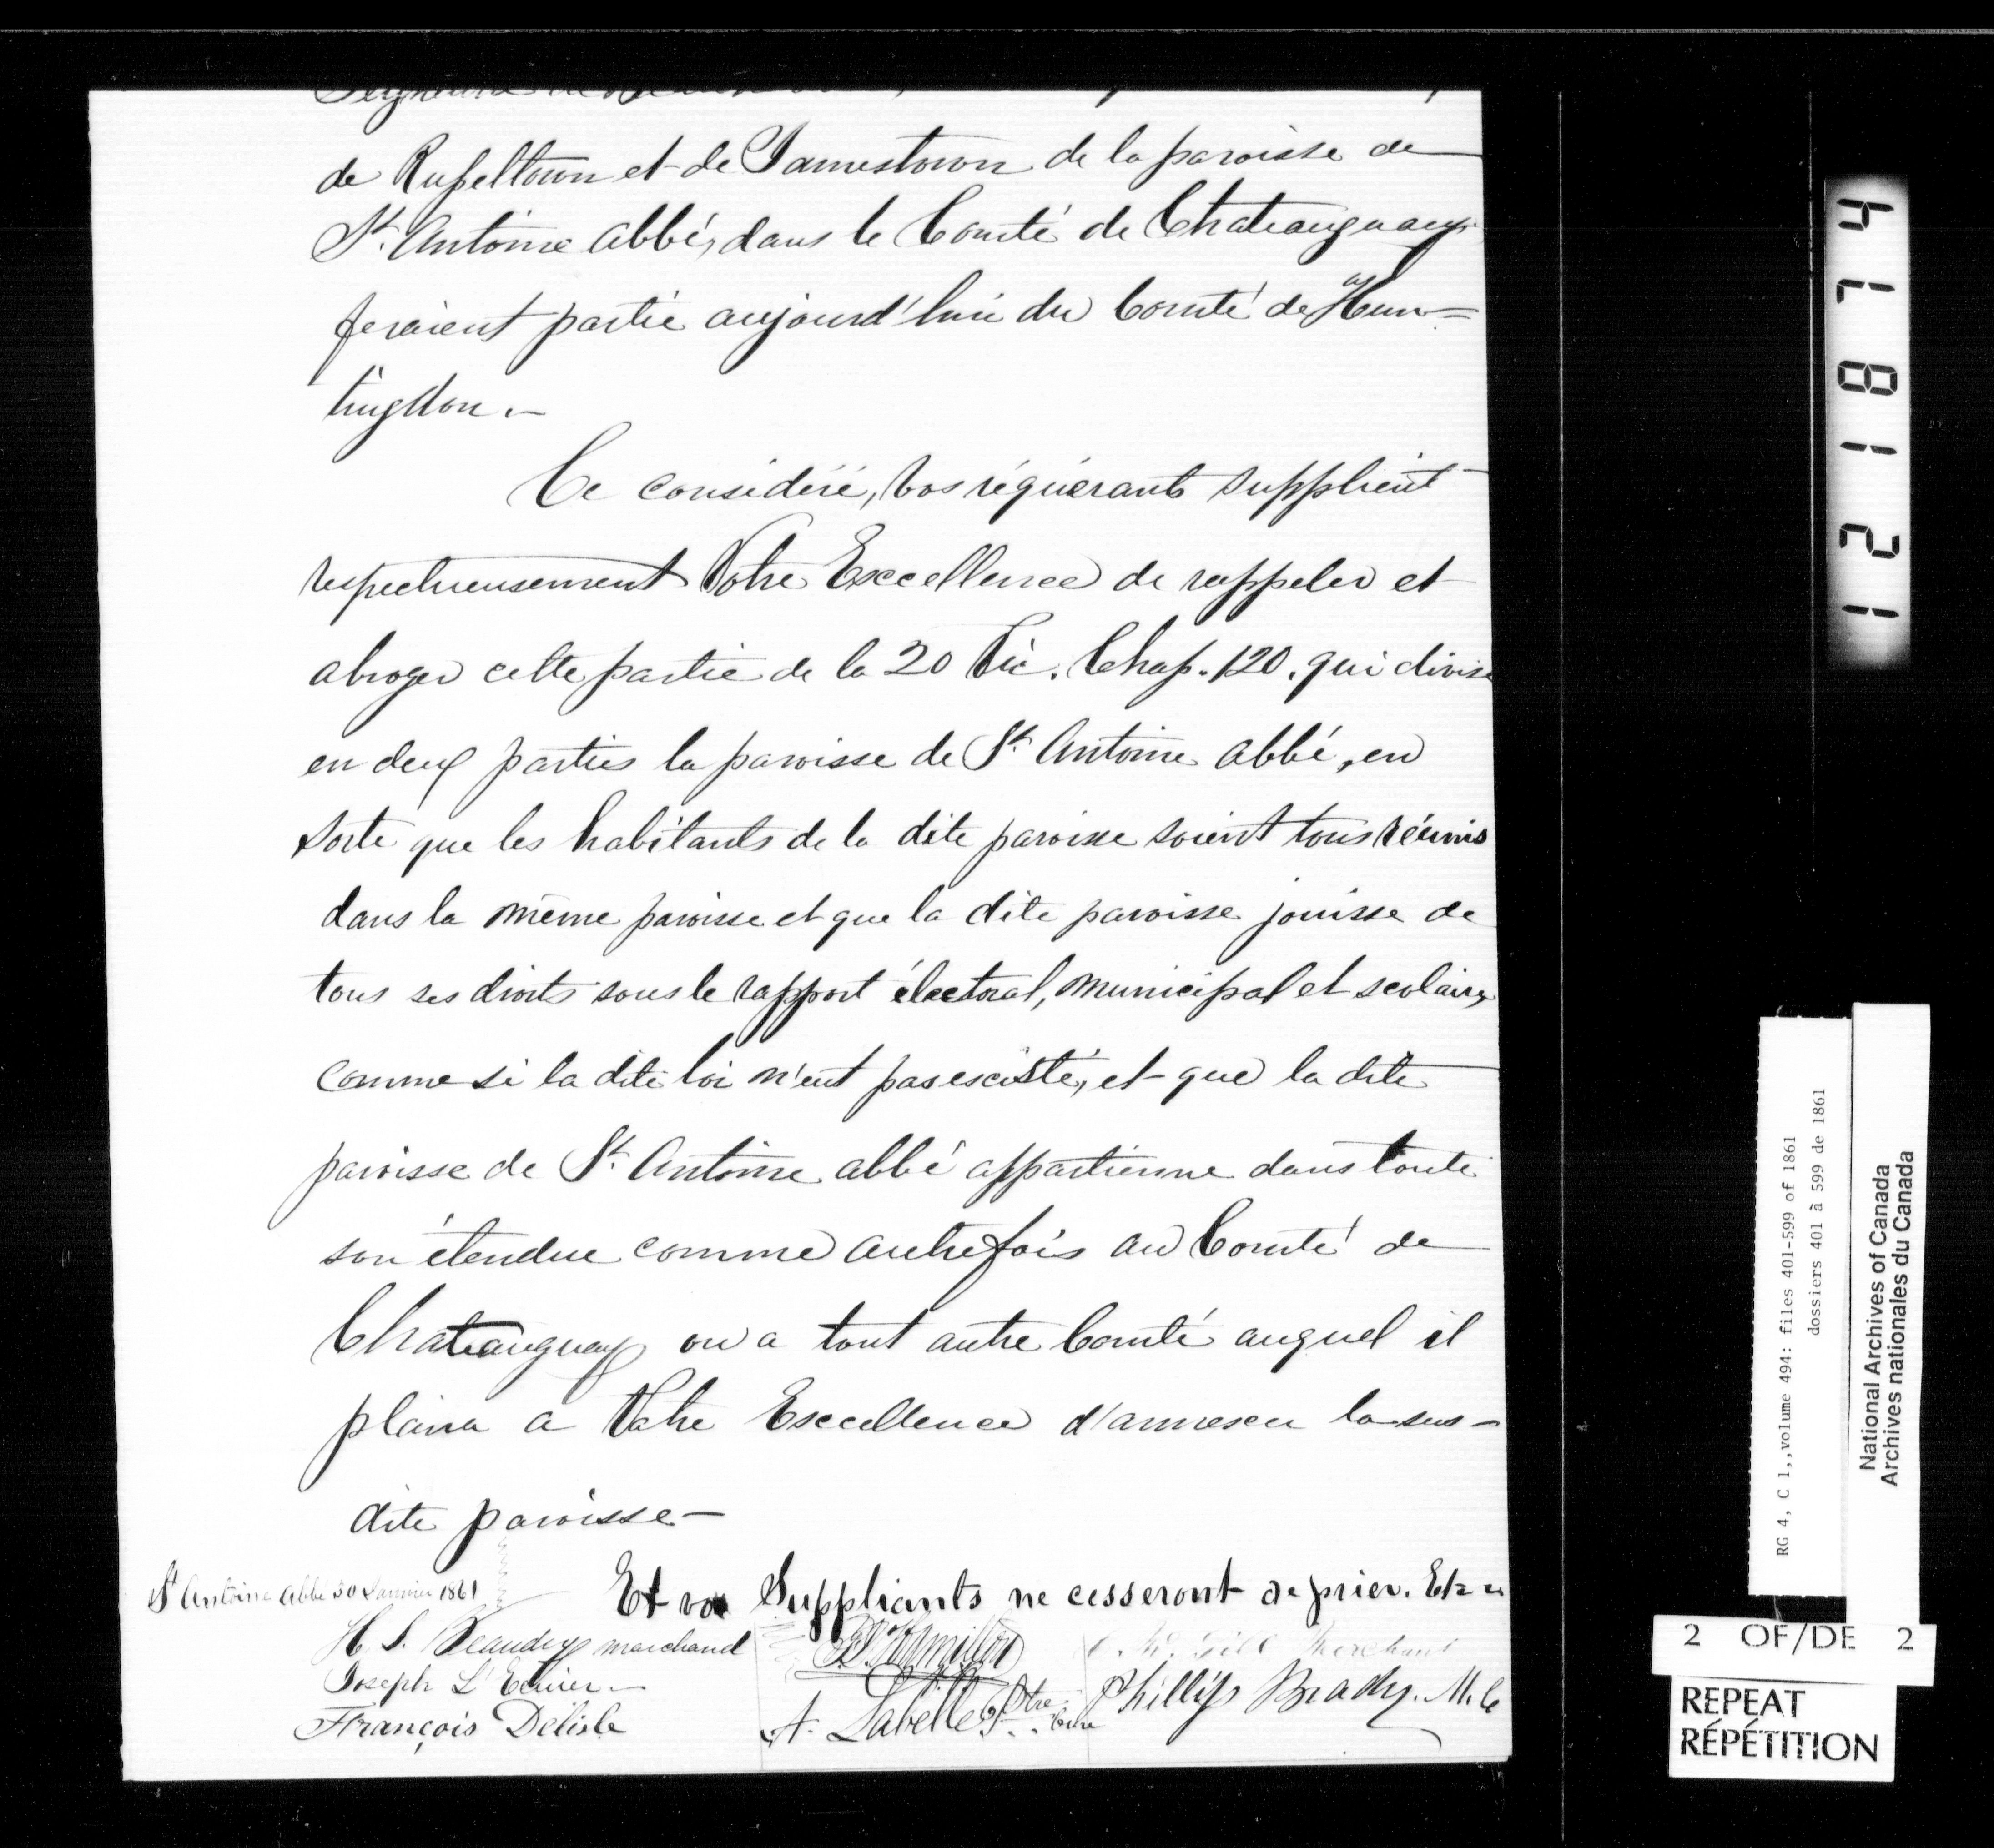 de Russeltown et de Jamestown de la paroisse de
St. Antoine abbé, dans le Comté de Chateauguay
feraient partie aujourd'hui du Comté de Hun=
tingdon.—
Ce considéré, vos réquérants supplient
respectueusement Votre Excellence de rappeler et
abroger cette partie de la 20 Vic. Chap. 120. qui divise
en deux parties la paroisse de St. Antoine abbé, en
sorte que les habitants de la dite paroisse soient tous réunis
dans la même paroisse et que la dite paroisse jouisse de
tous ses droits sous le rapport électoral, municipal et scolaire,
comme si la dite loi n'eut pas existé, et que la dite
paroisse de St. Antoine abbé appartienne dans toute
son étendue comme autrefois au Comté de
Chateauguay ou a tout autre Comté auquel il
plaira a Votre Excellence d'annexer la sus-
dite paroisse—
Et vos Suppliants ne cesseront de prier. Etz
St Antoine Abbé 30 Janvier 1861
H. S. Beaudry marchand
Joseph L'Ecuier
François Délisle
A. Labelle Ptre Curé
Merchant
Phillips Brady. M. C
471812 1
RG 4, C 1,,volume 494: files 401-599 of 1861
dossiers 401 à 599 de 1861
National Archives of Canada
Archives nationales du Canada
2 OF/DE 2
REPEAT
RÉPÉTITION